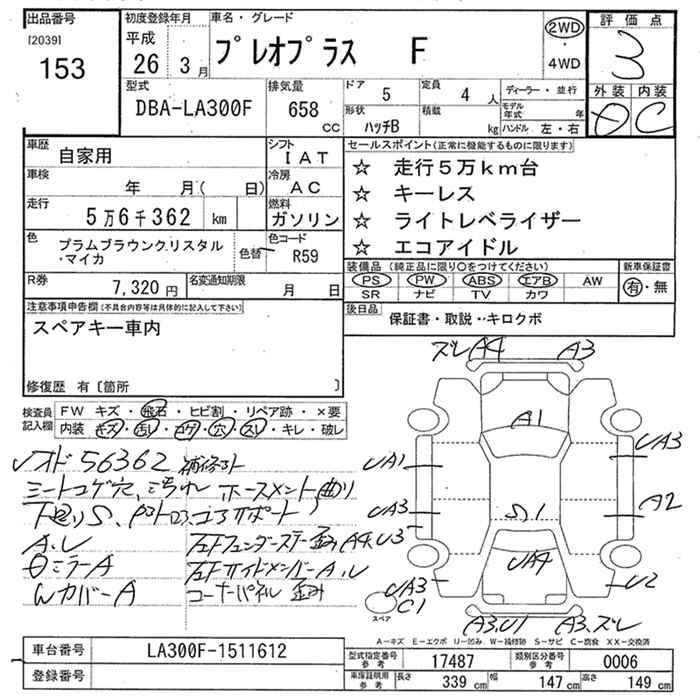 出品番号
[2039]
153
初度登録年月
平成
26 3月
車名・グレード
プレオプラス F
2WD
・
4WD
評価点
3
外装 内装
D C
型式
DBA-LA300F
排気量
658
cc
ドア 5
定員 4人
形状
ハッチB
積載
kg
ディーラー・並行
モデル年式 年
ハンドル 左・右
車歴
自家用
シフト
IAT
車検
年 月( 日)
冷房
AC
走行
5万6千362 km
燃料
ガソリン
色
プラムブラウンクリスタル
・マイカ
色替
色コード
R59
R券
7,320円
名変通知期限
月 日
セールスポイント(正常に機能するものに限ります)
☆ 走行5万km台
☆ キーレス
☆ ライトレベライザー
☆ エコアイドル
装備品(純正品に限り○をつけてください)
PS PW ABS エアB AW
SR ナビ TV カワ
新車保証書
有・無
後日品
保証書・取説・・キロクボ
注意事項申告欄(不具合内容等は具体的に記入して下さい)
スペアキー車内
修復歴 有〔箇所 〕
検査員
記入欄
FW キズ・飛石・ヒビ割・リペア跡・×要
内装 キズ・汚レ・コゲ・穴・スレ・キレ・破レ
メオド 56362
シートコゲ穴、汚れ
A、U
ミラーA
WカバーA
コーナーパネル 歪み
ズレA4 A3
A1
UA1 UA3
UA3 A2
S1
U3
UA4
UA3 U2
C1
スペア
A3.U1 A3.ズレ
A−キズ E−エクボ U−凹み W−補修跡 S−サビ C−腐食 XX−交換済
車台番号
LA300F-1511612
登録番号
型式指定番号
参考
17487
類別区分番号
参考
0006
車庫証明用
参考
長さ 339cm
幅 147cm
高さ 149cm